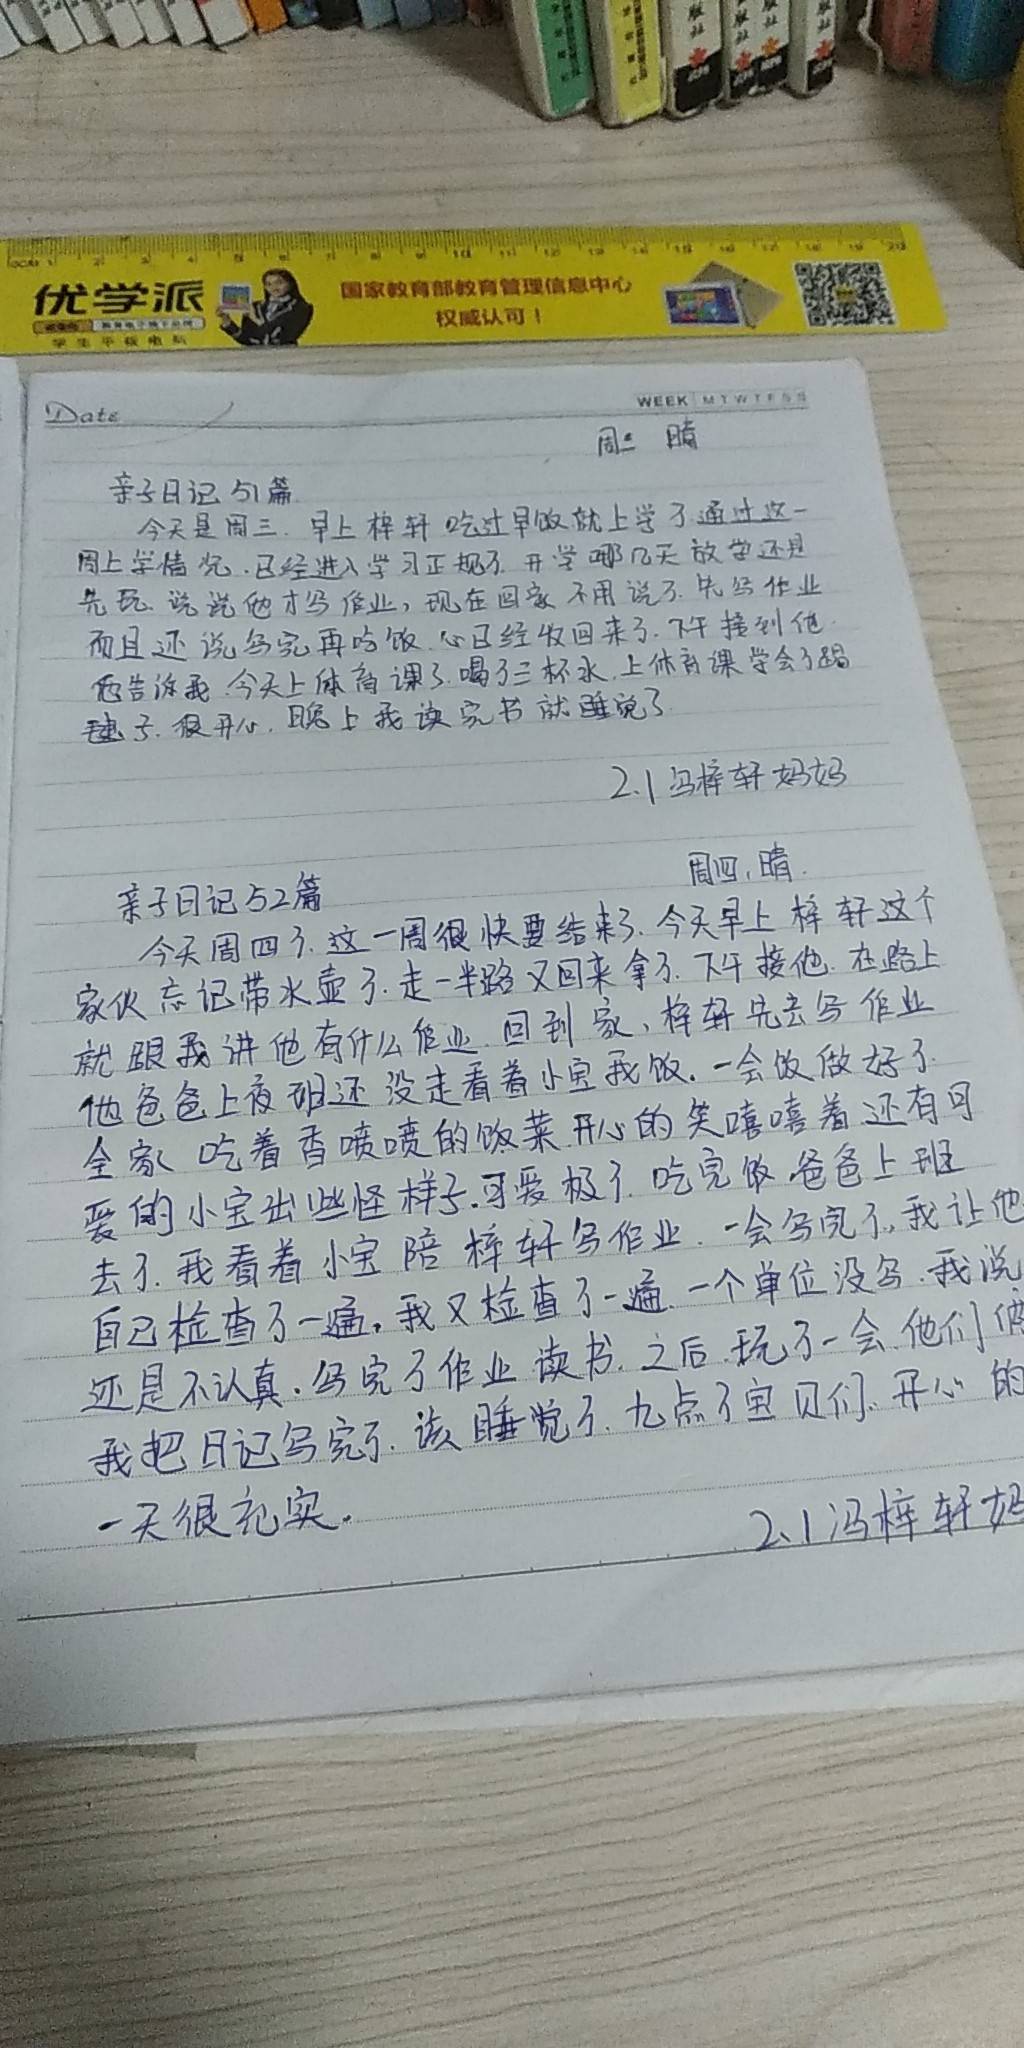 优学派
学生平板电脑
国家教育部教育管理信息中心
权威认可！
Date
WEEK M T W T F S S
周三 晴
亲子日记51篇
今天是周三.早上梓轩吃过早饭就上学了通过这一
周上学情况.已经进入学习正规了.开学哪几天放学还是
先玩.说说他才写作业,现在回家不用说了.先写作业
而且还说写完再吃饭.心已经收回来了.下午接到他.
他告诉我.今天上体育课了.喝了三杯水.上体育课学会了踢
毽子.很开心.晚上我读完书就睡觉了
2.1冯梓轩妈妈
周四,晴.
亲子日记52篇
今天周四了.这一周很快要结束了.今天早上梓轩这个
家伙忘记带水壶了.走一半路又回来拿了.下午接他.在路上
就跟我讲他有什么作业.回到家,梓轩先去写作业
他爸爸上夜班还没走看着小宝我饭.一会饭做好了.
全家吃着香喷喷的饭菜.开心的笑嘻嘻着还有可
爱的小宝出些怪样子.可爱极了.吃完饭爸爸上班
去了.我看着小宝陪梓轩写作业.一会写完了,我让他
自己检查了一遍,我又检查了一遍.一个单位没写.我说
还是不认真.写完了作业读书.之后玩了一会.他们
我把日记写完了.该睡觉了.九点了宝贝们.开心的
一天很充实.
2.1冯梓轩妈